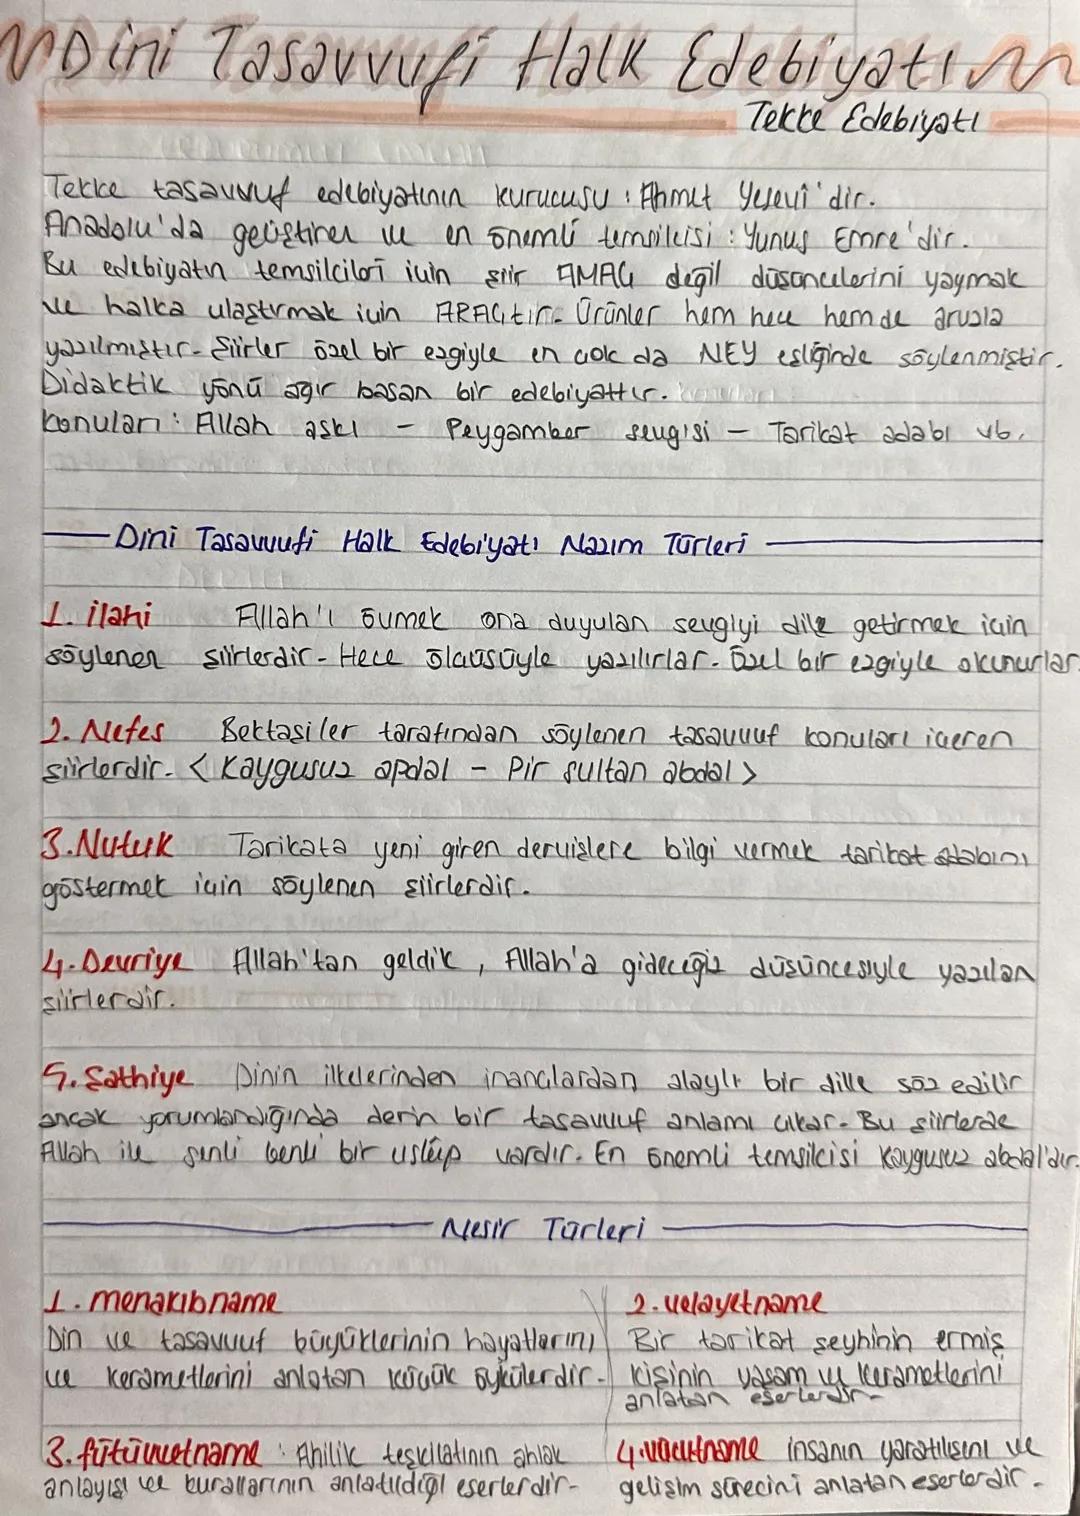 Dini Tasavvufi Halk Edebiyatı
Tekke Edebiyatı
Tekke tasavvuf edebiyatının kurucusu : Ahmet Yesevi'dir.
Anadolu'da geliştiren ve en önemli temsilcisi : Yunus Emre'dir.
Bu edebiyatın temsilcileri için şiir AMAÇ değil düşüncelerini yaymak
ve halka ulaştırmak için ARAÇtır. Ürünler hem hece hemde aruzla
yazılmıştır. Şiirler özel bir ezgiyle en çok da NEY eşliğinde söylenmiştir.
Didaktik yönü ağır basan bir edebiyattır.
konuları : Allah aşkı - Peygamber sevgisi - Tarikat adabı vb.
Dini Tasavvufi Halk Edebiyatı Nazım Türleri
1. ilahi Allah'ı övmek ona duyulan sevgiyi dile getirmek için
söylenen şiirlerdir. Hece ölçüsüyle yazılırlar. Özel bir ezgiyle okunurlar.
2. Nefes Bektaşiler tarafından söylenen tasavvuf konuları içeren
şiirlerdir. < Kaygusuz apdal - Pir sultan abdal >
3. Nutuk Tarikata yeni giren dervişlere bilgi vermek tarikat adabını
göstermek için söylenen şiirlerdir.
4. Devriye Allah'tan geldik, Allah'a gideceğiz düşüncesiyle yazılan
şiirlerdir.
5. Şathiye Dinin ilkelerinden inançlardan alaylı bir dille söz edilir
ancak yorumlandığında derin bir tasavvuf anlamı çıkar. Bu şiirlerde
Allah ile senli benli bir uslüp vardır. En önemli temsilcisi Kaygusuz abdal'dır.
Nesir Türleri
1. menakıbname
Din ve tasavvuf büyüklerinin hayatlarını
ve kerametlerini anlatan küçük öykülerdir.
2. velayetname
Bir tarikat şeyhinin ermiş
kişinin yaşam ve kerametlerini
anlatan eserlerdir.
3. fütüvvetname : Ahilik teşkilatının ahlak
anlayışı ve kurallarının anlatıldığı eserlerdir.
4. vücutname insanın yaratılışını ve
gelişim sürecini anlatan eserlerdir.